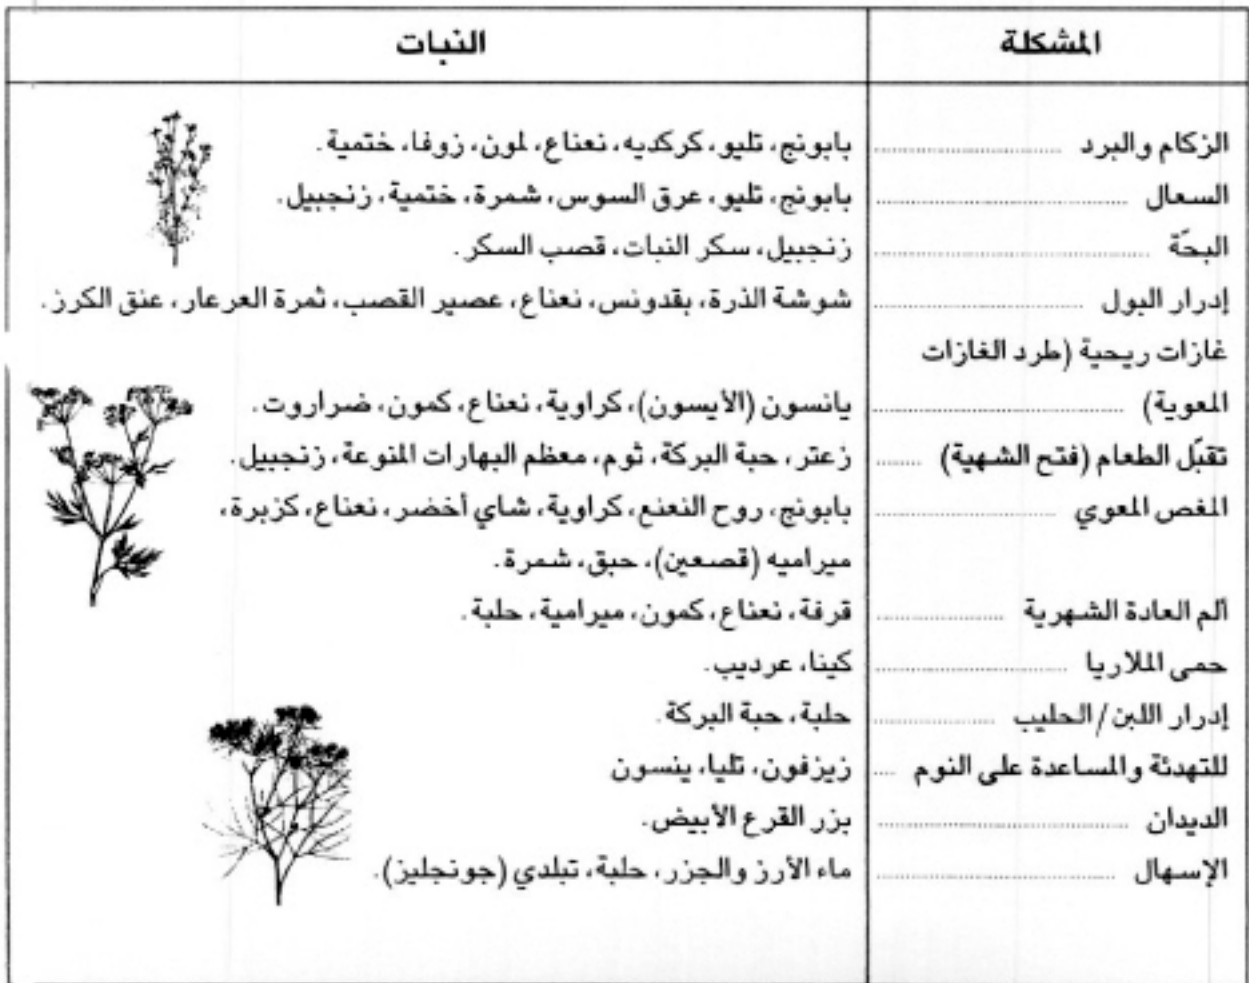 المشكلة النبات
الزكام والبرد بابونج، تليو، كركديه، نعناع، لمون، زوفا، ختمية.
السعال بابونج، تليو، عرق السوس، شمرة، ختمية، زنجبيل.
البحّة زنجبيل، سكر النبات، قصب السكر.
إدرار البول شوشة الذرة، بقدونس، نعناع، عصير القصب، ثمرة العرعار، عنق الكرز.
غازات ريحية (طرد الغازات
المعوية) يانسون (الأيسون)، كراوية، نعناع، كمون، ضراروت.
تقبّل الطعام (فتح الشهية) زعتر، حبة البركة، ثوم، معظم البهارات المنوعة، زنجبيل.
المغص المعوي بابونج، روح النعنع، كراوية، شاي أخضر، نعناع، كزبرة،
ميراميه (قصعين)، حبق، شمرة.
ألم العادة الشهرية قرفة، نعناع، كمون، ميرامية، حلبة.
حمى الملاريا كينا، عرديب.
إدرار اللبن/الحليب حلبة، حبة البركة.
للتهدئة والمساعدة على النوم زيزفون، تليا، ينسون
الديدان بزر القرع الأبيض.
الإسهال ماء الأرز والجزر، حلبة، تبلدي (جونجليز).